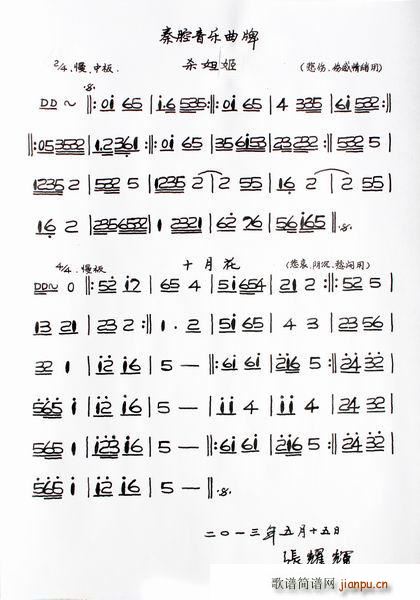 秦腔音乐曲牌
2/4、慢、中板. 杀妲姬 (悲伤、伤感情绪用)
DD～ ‖: 0i 65 | i·6 535 :‖: 0i 65 | 4 335 | 6532 :‖
‖: 053532 | 1.2361 :‖: 0i 65 | 356153 | 23232 :‖: 532 5 |
1235 2 | 532 5 | 1235 2 | 2 55 | 16 2 | 2 55 |
16 2 | 2356532 | 1 2321 | 62 76 | 56i65 ‖
4/4、慢板 十月花 (悲哀、阴沉、愁闷用)
DD～ 0 ‖: 52 i7 | 65 4 | 5i654 | 21 2 :‖: 5 5 |
13 21 | 23 2 :‖ 1 . 2 | 5i 65 | 4 3 | 23 56 |
32 1 | i2 i6 | 5 — :‖: 6i 6i | 2i6 5 :‖: 24 32 |
565 i | i2 i6 | 5 — | i i 4 | i i 4 | 24 32 |
565 i | i23 i6 | 5 — :‖: 6i 6i | 2i6 5 :‖ 24 32 |
565 i | i2 i6 | 5 — ‖
二〇一三年五月十五日
張耀輝
歌谱简谱网
jianpu.cn